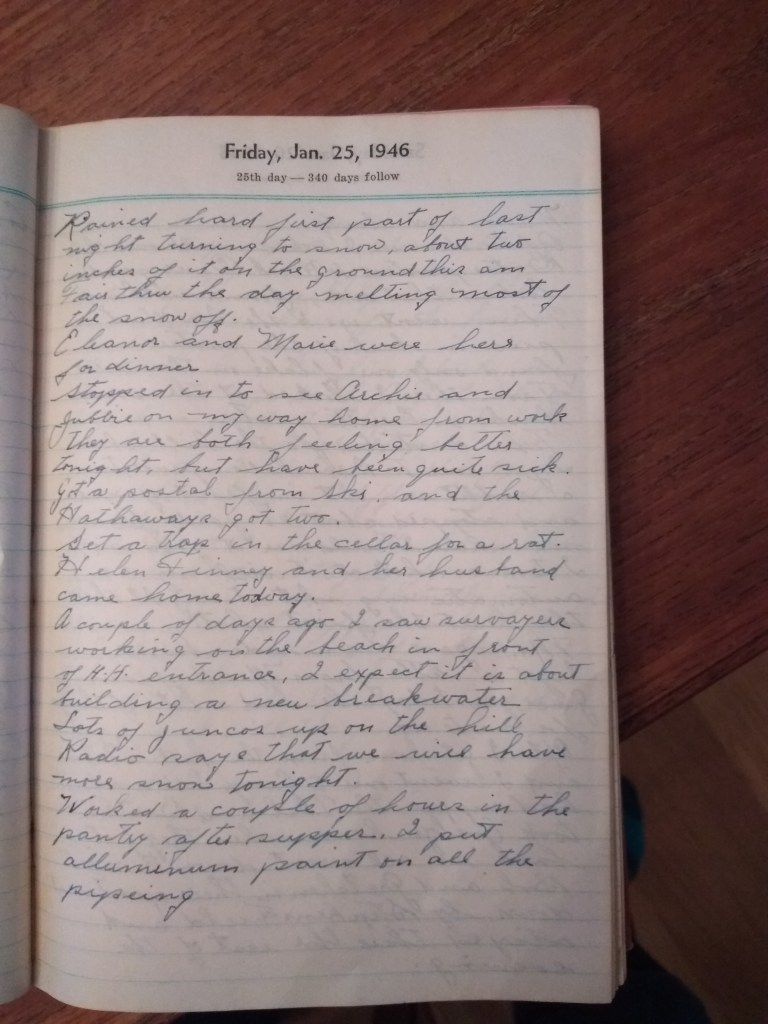 Friday, Jan. 25, 1946
25th day — 340 days follow
Rained hard first part of last
night turning to snow, about two
inches of it on the ground this am
Fair thru the day melting most of
the snow off.
Eleanor and Marie were here
for dinner
Stopped in to see Archie and
on my way home from work
they are both feeling better
tonight, but have been quite sick.
Got a postal from Ski, and the
Hathaways got two.
Set a trap in the cellar for a rat.
Helen Finney and her husband
came home today.
A couple of days ago I saw survayers
working on the beach in front
of H.H. entrance, I expect it is about
building a new breakwater
Lots of juncos up on the hill
Radio says that we will have
more snow tonight.
Worked a couple of hours in the
pantry after supper. I put
alluminum paint on all the
pipeing